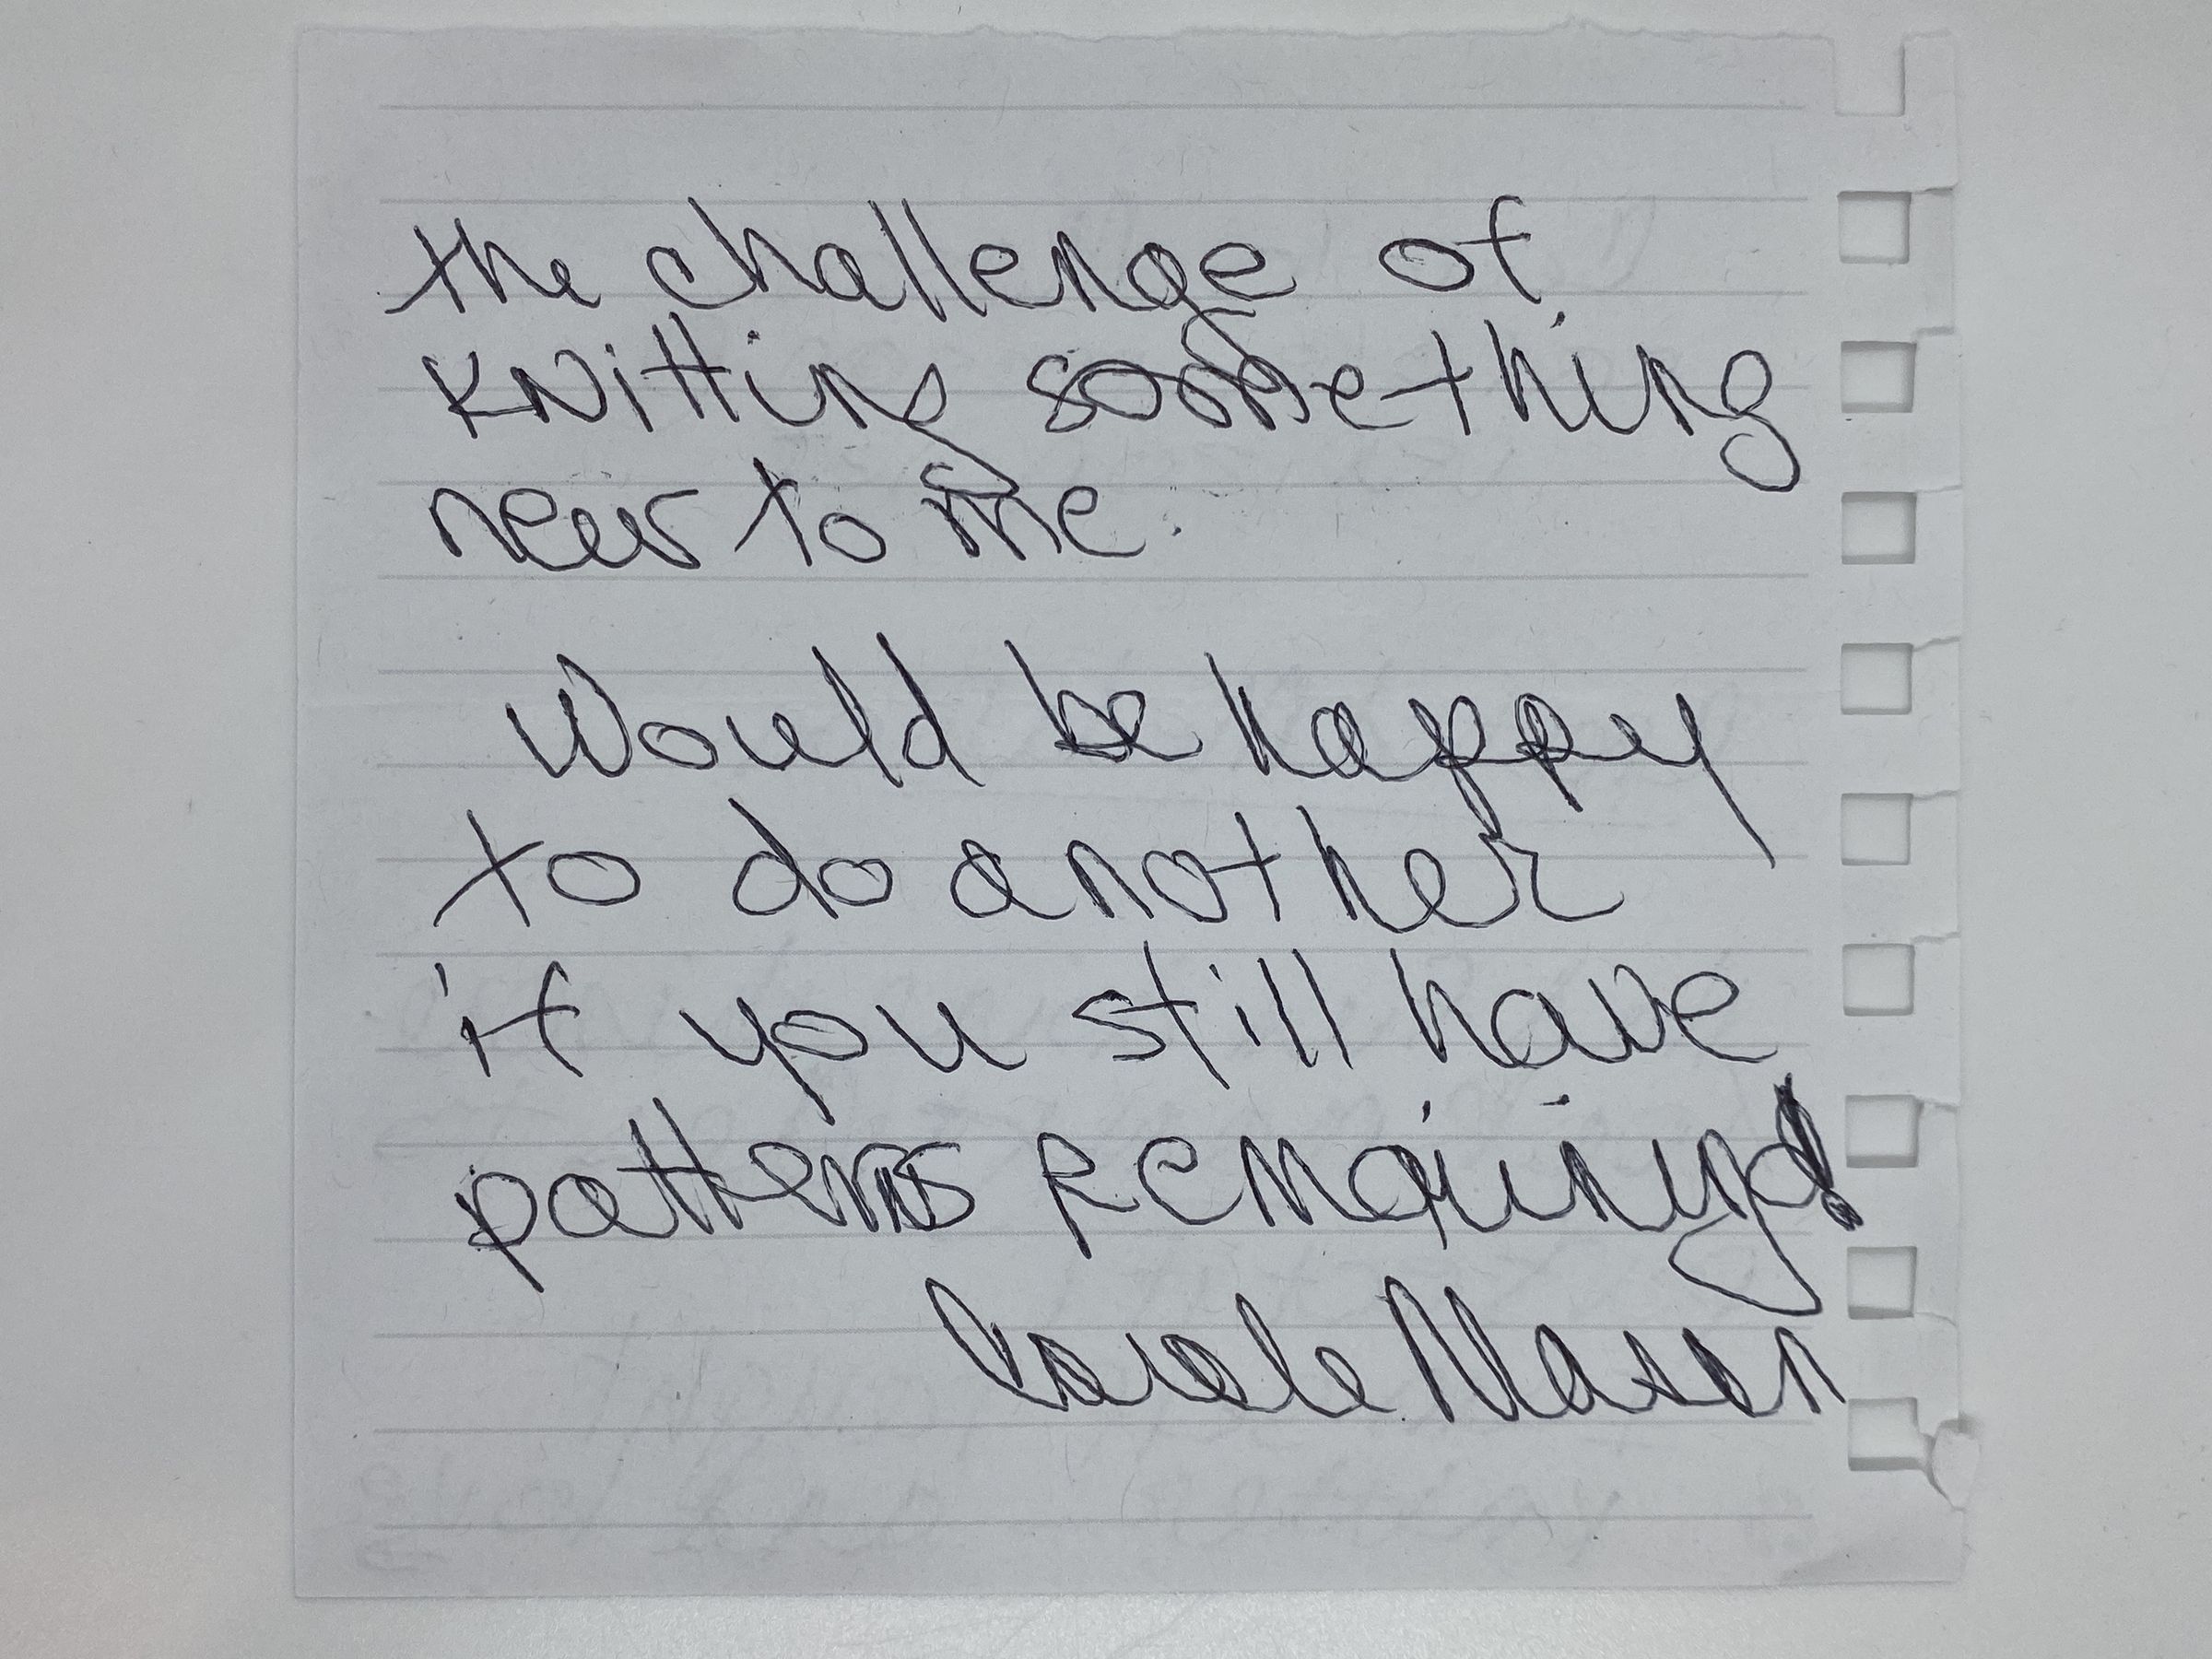 the challenge of
knitting something
new to me.
Would be happy
to do another
if you still have
patterns remaining!
Carole Mason